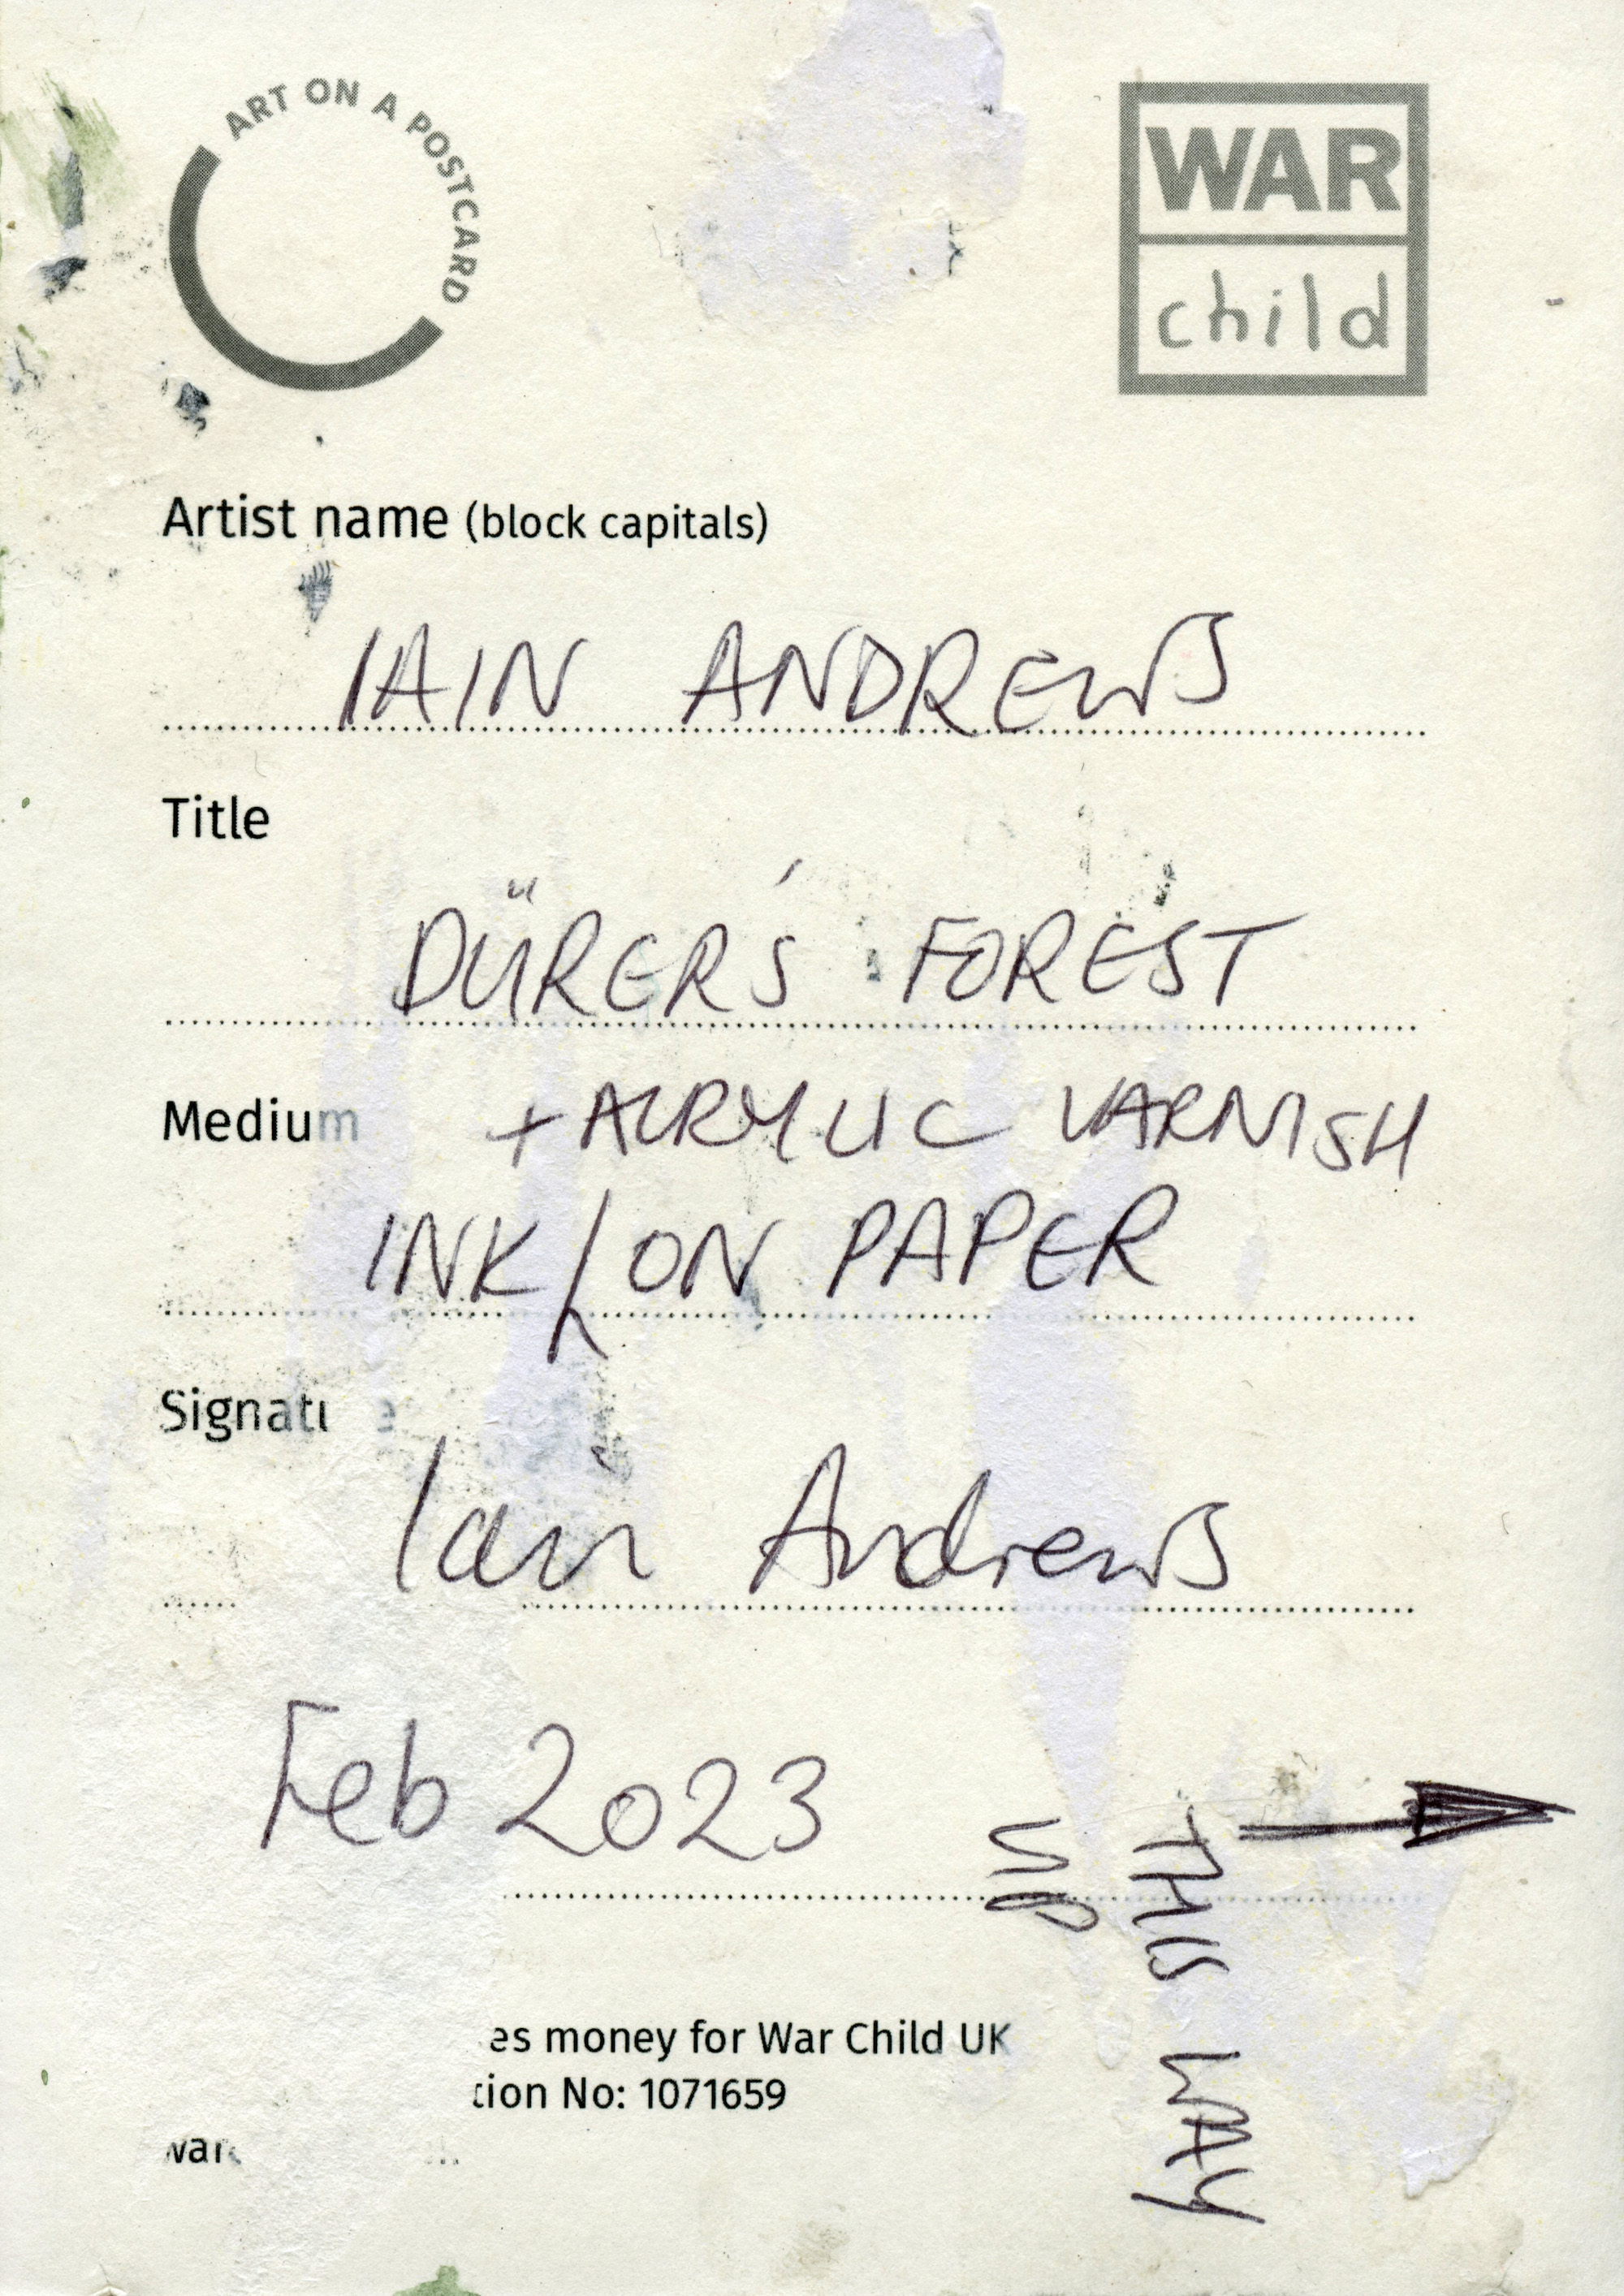 ART ON A POSTCARD
WAR
child
Artist name (block capitals)
IAIN ANDREWS
Title
DÜRER'S FOREST
Medium + ACRYLIC VARNISH
INK / ON PAPER
Signatu e
Iain Andrews
Feb 2023
THIS WAY
UP
es money for War Child UK
tion No: 1071659
war